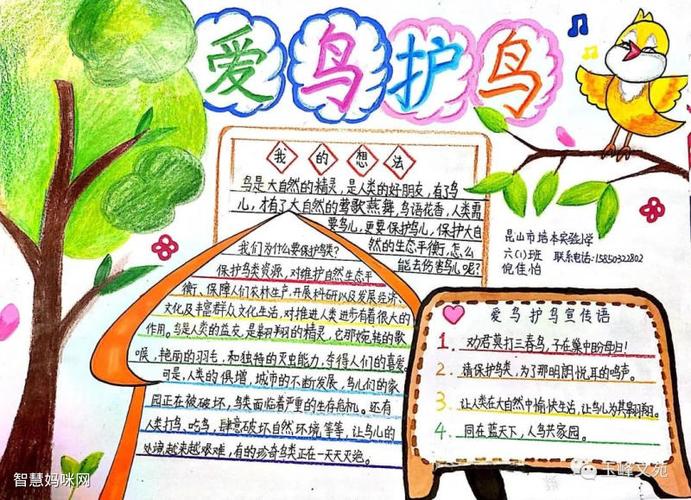 爱鸟护鸟
我的想法
鸟是大自然的精灵，是人类的好朋友，有鸟
儿，才有了大自然的莺歌燕舞，鸟语花香，人类需
要鸟儿，更要保护鸟儿，保护大自
然的生态平衡，怎么
能去伤害鸟儿呢？
昆山市培本实验小学
六(1)班 联系电话:15850322802
倪佳怡
我们为什么要保护鸟类？
保护鸟类资源，对维护自然生态平
衡、保障人们农林生产，开展科研以及发展经济、
文化及丰富群众文化生活，对推进人类进步有着很大的
作用。鸟是人类的益友，是翱翔的精灵，它那婉转的歌
喉，艳丽的羽毛，和独特的灭虫能力，夺得人们的喜爱。
可是，人类的俱增，城市的不断发展，鸟儿们的家
园正在被破坏，鸟类面临着严重的生存危机。还有
人类打鸟，吃鸟，肆意破坏自然环境，等等，让鸟儿的
处境越来越艰难，有的珍奇鸟类正在一天天灭绝。
爱鸟护鸟宣传语
1. 劝君莫打三春鸟，子在巢中盼母归！
2. 请保护鸟类，为了那明朗悦耳的鸣声。
3. 让人类在大自然中愉快生活，让鸟儿为其翱翔。
4. 同在蓝天下，人鸟共家园。
智慧妈咪网
玉峰文苑